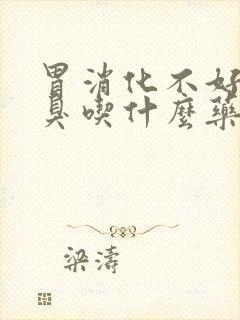 胃消化不好
臭喫什麼藥
梁濤